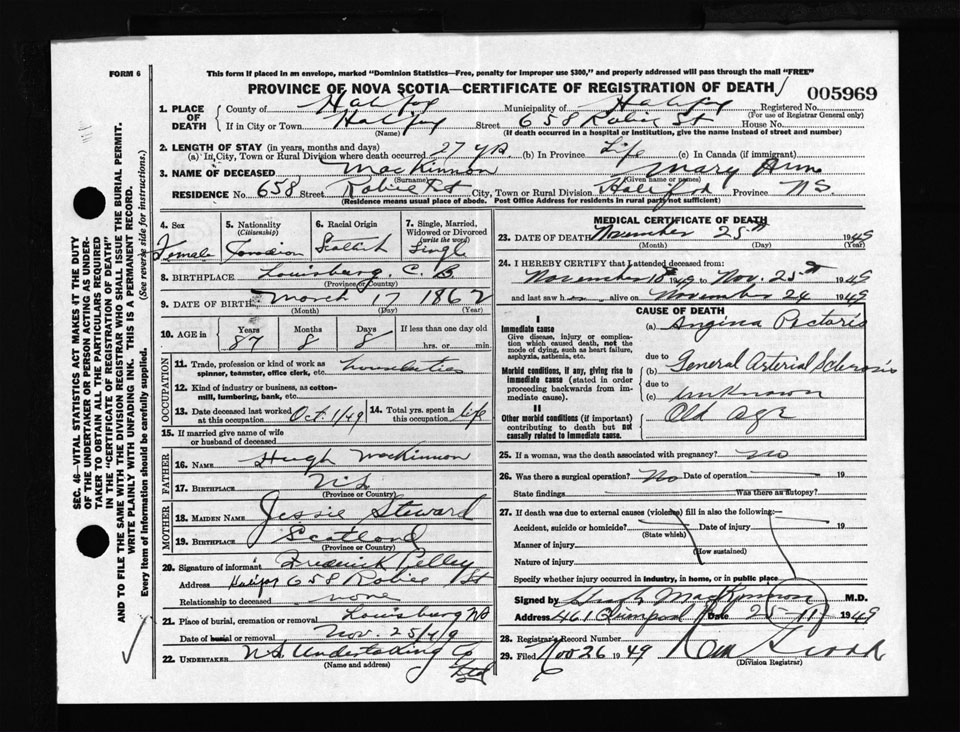 FORM 6
This form if placed in an envelope, marked "Dominion Statistics—Free, penalty for improper use $300," and properly addressed will pass through the mail "FREE"
PROVINCE OF NOVA SCOTIA—CERTIFICATE OF REGISTRATION OF DEATH
005969
1. PLACE OF DEATH
County of Halifax Municipality of Halifax Registered No.
(For use of Registrar General only)
If in City or Town Halifax Street 658 Robie St House No.
(Name) (If death occurred in a hospital or institution, give the name instead of street and number)
2. LENGTH OF STAY (in years, months and days)
(a) In City, Town or Rural Division where death occurred 27 yrs. (b) In Province Life (c) In Canada (if immigrant)
3. NAME OF DECEASED MacKinnon Mary Ann
(Surname) (Given name or names)
RESIDENCE No. 658 Street Robie St City, Town or Rural Division Halifax Province NS
(Residence means usual place of abode. Post Office Address for residents in rural parts not sufficient)
4. Sex
Female
5. Nationality
(Citizenship)
Canadian
6. Racial Origin
Scotch
7. Single, Married, Widowed or Divorced
(write the word)
Single
8. BIRTHPLACE Louisburg, C. B.
(Province or Country)
9. DATE OF BIRTH March 17 1862
(Month) (Day) (Year)
10. AGE in
Years Months Days If less than one day old
87 8 8 hrs. or min.
OCCUPATION
11. Trade, profession or kind of work as spinner, teamster, office clerk, etc.
12. Kind of industry or business, as cotton-mill, lumbering, bank, etc.
13. Date deceased last worked at this occupation Oct. 1/49
14. Total yrs. spent in this occupation life
15. If married give name of wife or husband of deceased
FATHER
16. NAME Hugh MacKinnon
17. BIRTHPLACE N.S.
(Province or Country)
MOTHER
18. MAIDEN NAME Jessie Steward
19. BIRTHPLACE Scotland
(Province or Country)
20. Signature of informant Frederick Pelley
Address Halifax 658 Robie St
Relationship to deceased none
21. Place of burial, cremation or removal Louisburg NS
Date of burial or removal Nov. 25/49
22. UNDERTAKER N.S. Undertaking Co Ltd
(Name and address)
MEDICAL CERTIFICATE OF DEATH
23. DATE OF DEATH November 25th 1949
(Month) (Day) (Year)
24. I HEREBY CERTIFY that I attended deceased from:
November 18 1949 to Nov. 25th 1949
and last saw h alive on November 24 1949
CAUSE OF DEATH
I
Immediate cause
Give disease, injury or complication which caused death, not the mode of dying, such as heart failure, asphyxia, asthenia, etc.
(a) Angina Pectoris
due to
Morbid conditions, if any, giving rise to immediate cause (stated in order proceeding backwards from immediate cause).
(b) General Arterial Sclerosis
due to
(c) unknown
II
Other morbid conditions (if important) contributing to death but not causally related to immediate cause.
Old age
25. If a woman, was the death associated with pregnancy? no
26. Was there a surgical operation? No Date of operation 19
State findings Was there an autopsy?
27. If death was due to external causes (violence) fill in also the following:—
Accident, suicide or homicide? Date of injury 19
(State which)
Manner of injury
(How sustained)
Nature of injury
Specify whether injury occurred in industry, in home, or in public place
Signed by Hugh MacKinnon M.D.
Address 461 Date 25-11 1949
28. Registrar's Record Number
29. Filed Nov 26 1949
(Division Registrar)
SEC. 46—VITAL STATISTICS ACT MAKES IT THE DUTY
OF THE UNDERTAKER OR PERSON ACTING AS UNDER-
TAKER TO OBTAIN ALL THE PARTICULARS REQUIRED
IN THE "CERTIFICATE OF REGISTRATION OF DEATH"
AND TO FILE THE SAME WITH THE DIVISION REGISTRAR WHO SHALL ISSUE THE BURIAL PERMIT.
WRITE PLAINLY WITH UNFADING INK. THIS IS A PERMANENT RECORD.
Every item of information should be carefully supplied. (See reverse side for instructions.)